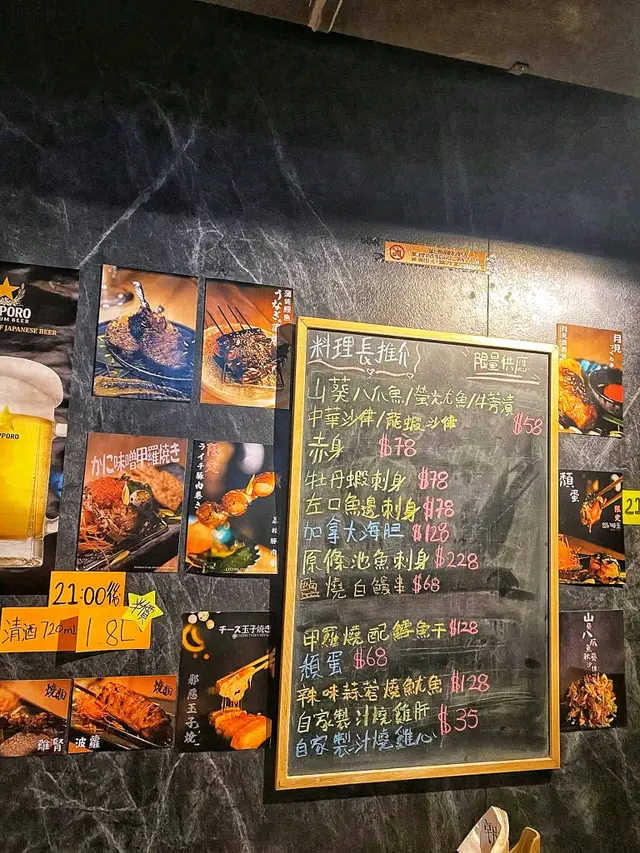 料理長推介
限量供應
山葵八爪魚/螢光尤魚/牛芳漬
中華沙律/龍蝦沙律 $58
赤身 $78
牡丹蝦刺身 $78
左口魚邊刺身 $78
加拿大海胆 $128
原條池魚刺身 $228
鹽燒白鱔串 $68
甲羅燒配鱈魚干 $128
頹蛋 $68
辣味蒜蓉燒魷魚 $128
自家製汁燒雞肝 $35
自家製汁燒雞心
JAPANESE BEER
かに味噌甲羅焼き
限定
ライチ豚肉巻き
21:00後
半價
清酒 720mL 1.8L
チーズ玉子焼き
邪惡玉子燒
燒物
雞腎
燒物
波蘿
月見
頹蛋
限定
21
山葵八爪魚